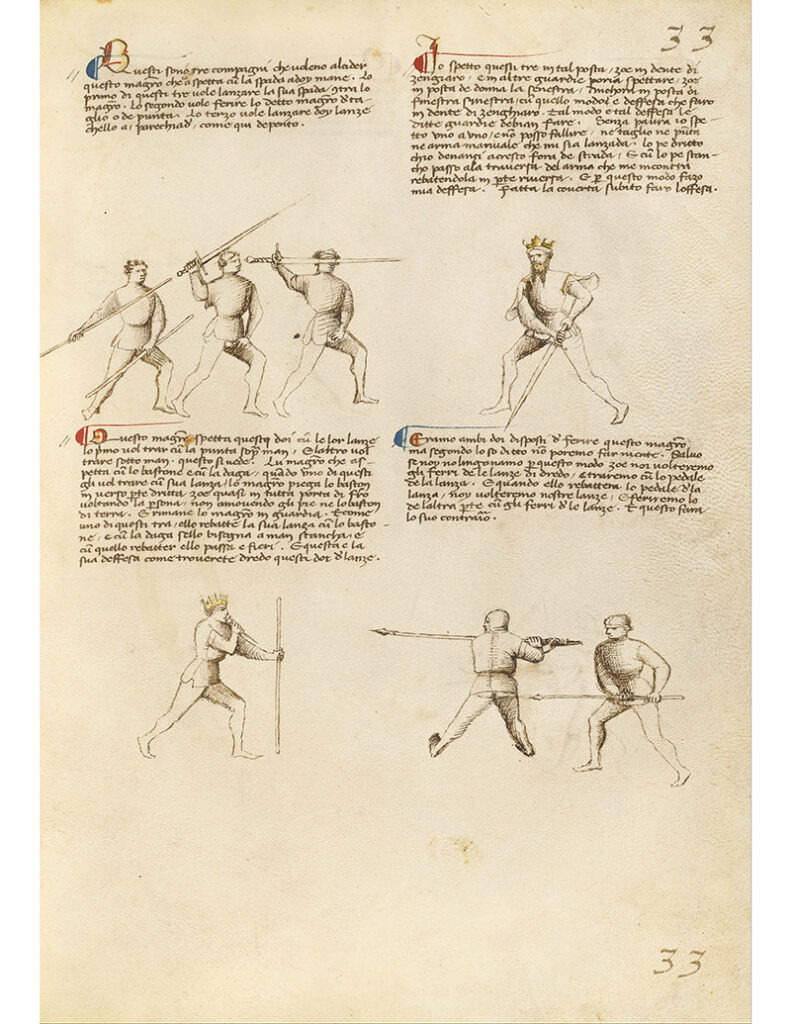 33
Questi sono tre compagni che voleno alcider
questo magistro che aspetta cum la spada a doy mane. Lo
primo di questi tre vole lanzare la sua spada contra lo
magistro. Lo segondo vole ferire lo detto magistro d'ta-
glio o de punta. Lo terzo vole lanzare doy lanze
ch'ello a parechiadi, come qui depento.
Io spetto questi tre in tal posta, zoe in dente di
zengiaro, e in altre guardie poria spettare, zoe
in posta de donna la senestra, Anchora in posta di
finestra sinestra, cum quello modo e deffesa che faro
in dente di zenghiaro. Tal modo e tal deffesa le
ditte guardie debian fare. Senza paura io spe-
tto uno a uno, e non posso fallire, ne taglio ne punta
ne arma manuale che mi sia lanzada. lo pe dritto
ch'io denanzi acresco fora de strada, E cum lo pe stan-
cho passo ala traversa del arma che me incontra
rebatendola in parte riversa. E per questo modo fazo
mia deffesa. Fatta la coverta subito faro l'offesa.
Questo magistro spetta questi doi cum le lor lanze
lo primo vol trar cum la punta sopra man, E l'altro vol
trare sotto man. questo si vede. Lu magistro che as-
petta cum lo bastone e cum la daga, quando uno di questi
gli vol trare cum sua lanza, lo magistro piega lo baston
in verso parte dritta, zoe quasi in tutta porta di fero
voltando la persona, non movando gli pie ne lo baston
di terra. E rimane lo magistro in guardia. E come
uno di questi tra, ello rebatte la sua lanza cum lo basto-
ne, e cum la daga s'ello bisogna a man stancha, e
cum quello rebatter ello passa e fieri. E questa e la
sua deffesa come troverete dredo questi doi d'lanze.
Eramo ambi doi disposti d' ferire questo magistro
ma segondo lo so ditto non poremo far niente. Salvo
se noy no lo inganamo per questo modo zoe noi volteremo
gli ferri de le lanze di dredo, e traremo cum lo pedale
de la lanza. E quando ello rebattera lo pedale d'la
lanza, noy volteremo nostre lanze, E feriremo lo
de l'altra parte cum gli ferri d'le lanze. E questo sara
lo suo contrario.
33